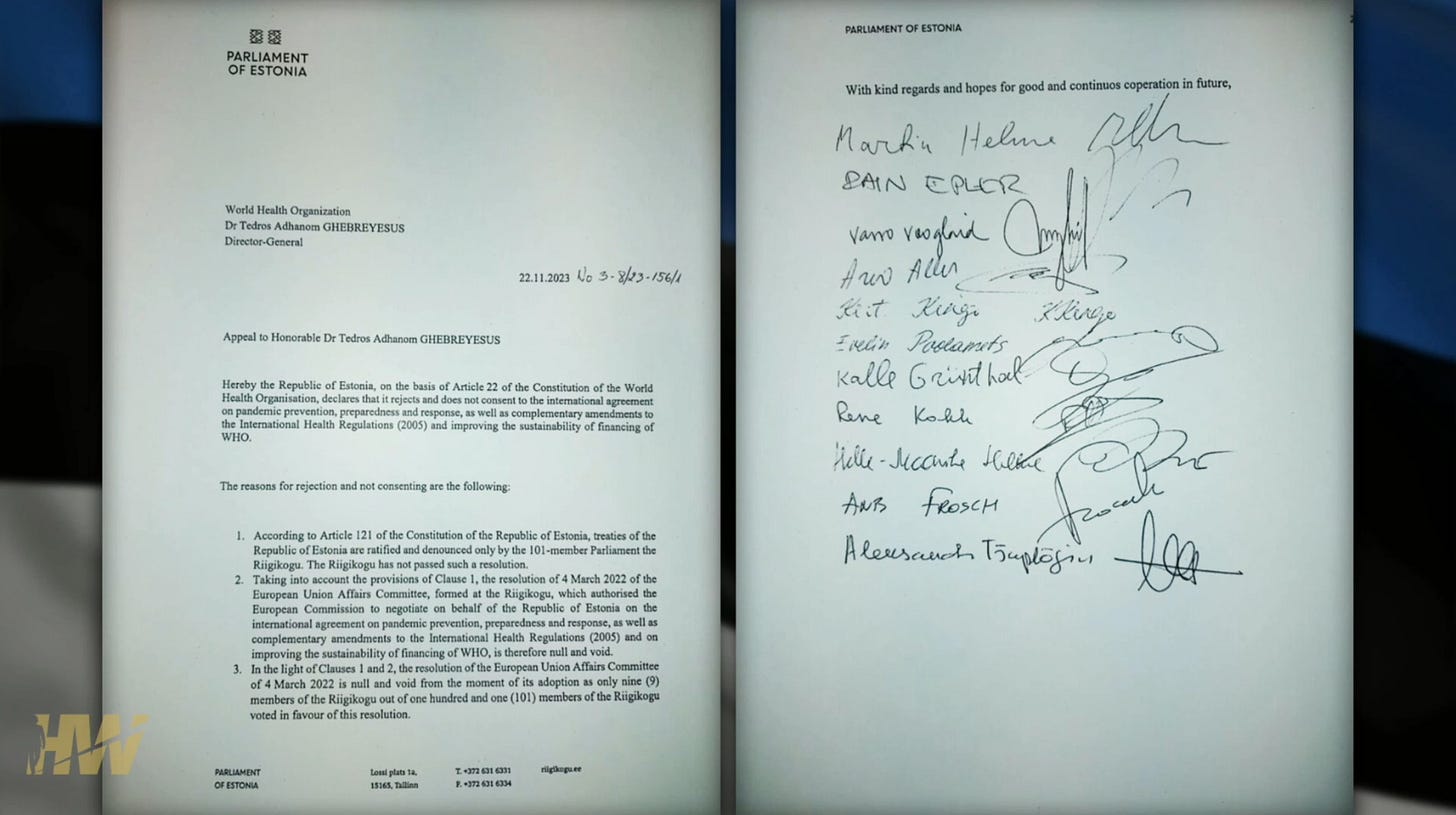 PARLIAMENT
OF ESTONIA
World Health Organization
Dr Tedros Adhanom GHEBREYESUS
Director-General
22.11.2023 No 3-8/23-156/1
Appeal to Honorable Dr Tedros Adhanom GHEBREYESUS
Hereby the Republic of Estonia, on the basis of Article 22 of the Constitution of the World
Health Organisation, declares that it rejects and does not consent to the international agreement
on pandemic prevention, preparedness and response, as well as complementary amendments to
the International Health Regulations (2005) and improving the sustainability of financing of
WHO.
The reasons for rejection and not consenting are the following:
1. According to Article 121 of the Constitution of the Republic of Estonia, treaties of the
Republic of Estonia are ratified and denounced only by the 101-member Parliament the
Riigikogu. The Riigikogu has not passed such a resolution.
2. Taking into account the provisions of Clause 1, the resolution of 4 March 2022 of the
European Union Affairs Committee, formed at the Riigikogu, which authorised the
European Commission to negotiate on behalf of the Republic of Estonia on the
international agreement on pandemic prevention, preparedness and response, as well as
complementary amendments to the International Health Regulations (2005) and on
improving the sustainability of financing of WHO, is therefore null and void.
3. In the light of Clauses 1 and 2, the resolution of the European Union Affairs Committee
of 4 March 2022 is null and void from the moment of its adoption as only nine (9)
members of the Riigikogu out of one hundred and one (101) members of the Riigikogu
voted in favour of this resolution.
PARLIAMENT
OF ESTONIA
Lossi plats 1a,
15165, Tallinn
T. +372 631 6331
F. +372 631 6334
riigikogu.ee
HW
PARLIAMENT OF ESTONIA
With kind regards and hopes for good and continuos coperation in future,
Martin Helme
RAIN EPLER
Varro Vooglaid
Arvo Aller
Kert Kingo KKingo
Evelin Poolamets
Kalle Grünthal
Rene Kokk
Helle-Moonika Helme
ANTI FROSCH
Aleksandr Tšaplõgin